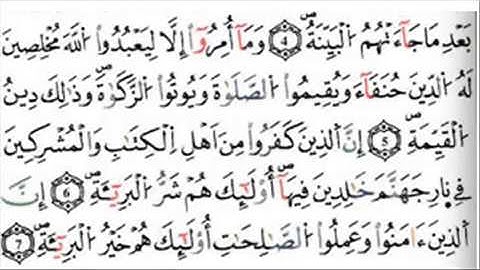 بَعْدِ مَا جَآءَتْهُمُ اُ۬لْبَيِّنَةُۖ ٤ وَمَآ أُمِرُوٓاْ إِلَّا لِيَعْبُدُواْ اُ۬للَّهَ مُخْلِصِينَ
لَهُ اُ۬لدِّينَ حُنَفَآءَ وَيُقِيمُواْ اُ۬لصَّلَوٰةَ وَيُوتُواْ اُ۬لزَّكَوٰةَۖ وَذَٰلِكَ دِينُ
اُ۬لْقَيِّمَةِۖ ٥ إِنَّ اَ۬لذِينَ كَفَرُواْ مِنَ اَهْلِ اِ۬لْكِتَٰبِ وَالْمُشْرِكِينَ
فِي نِارِ جَهَنَّمَ خَٰلِدِينَ فِيهَآۖ أُوْلَٰٓئِكَ هُمْ شَرُّ اُ۬لْبَرِيٓـَٔةِۖ ٦ إِنَّ
اَ۬لذِينَ ءَامَنُواْ وَعَمِلُواْ اُ۬لصَّٰلِحَٰتِ أُوْلَٰٓئِكَ هُمْ خَيْرُ اُ۬لْبَرِيٓـَٔةِۖ ٧